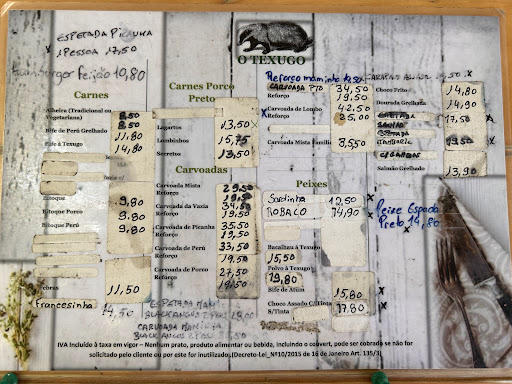 ESPETADA PICANHA
1 PESSOA 17,50
Hamburger Feijão 10,80
O TEXUGO
Carnes
Alheira (Tradicional ou
Vegetariana) 8,50
8,50
Bife de Perú Grelhado 11,80
Bife à Texugo 14,80
Bitoque 9,80
Bitoque Porco 9,80
Bitoque Perú 9,80
11,50
Francesinha 14,50
Carnes Porco
Preto
Lagartos 13,50
Lombinhos 15,75
Secretos 13,50
Carvoadas
Carvoada Mista 29,50
Reforço 19,50
Carvoada da Vazia 34,50
Reforço 19,50
Carvoada de Picanha 35,50
Reforço 19,50
Carvoada de Perú 33,50
Reforço 19,50
Carvoada de Porco 27,50
Reforço 19,50
ESPETADA
BLACK ANGUS
CARVOADA
BLACK ANGUS
Reforço maminha
CARVOADA PTO 34,50
Reforço 19,50
Carvoada de Lombo 42,50
Reforço 25,00
Carvoada Mista Família
Peixes
Sardinha 12,50
ROBALO 14,90
Bacalhau à Texugo
15,50
Polvo à Texugo
19,80
Bife de Atum 15,80
Choco Assado C/Tinta
S/Tinta 17,80
Choco Frito 14,80
Dourada Grelhada 14,90
17,50
19,50
Salmão Grelhado 13,90
Peixe Espada
Preto 14,80
IVA Incluído à taxa em vigor – Nenhum prato, produto alimentar ou bebida, incluindo o couvert, pode ser cobrada se não for
solicitado pelo cliente ou por este for inutilizado.(Decreto-Lei_Nº10/2015 de 16 de Janeiro Art. 135/3)